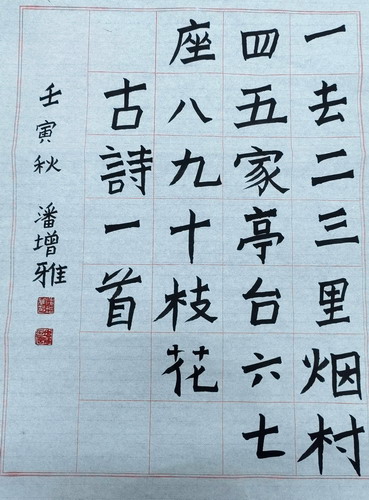 一去二三里烟村
四五家亭台六七
座八九十枝花
古詩一首
壬寅秋 潘增雅